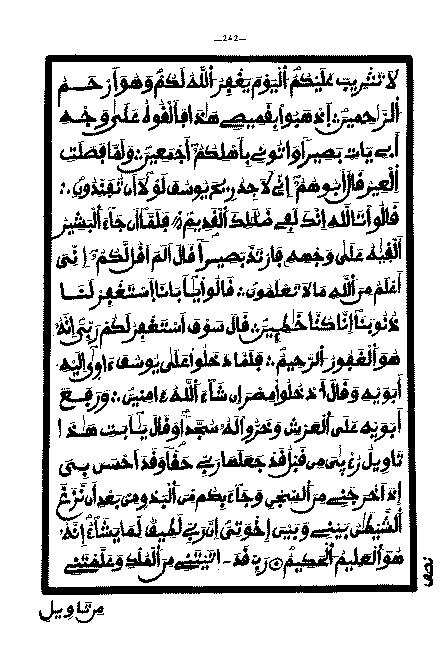 —242—
لَا تَثْرِيبَ عَلَيْكُمُ اُلْيَوْمَ يَغْفِرُ اُللَّهُ لَكُمْ وَهُوَ أَرْحَمُ
اُلرَّٰحِمِينَ ∴ اَذْهَبُوا بِقَمِيصِے هَٰذَا فَأَلْقُوهُ عَلَىٰ وَجْهِ
أَبِے يَاتِ بَصِيراً وَاتُونِے بِأَهْلِكُمْ أَجْمَعِينَ ∴ وَلَمَّا فَصَلَتِ
اِلْعِيرُ قَالَ أَبُوهُمْ إِنِّے لَأَجِدُ رِيحَ يُوسُفَ لَوْلَا أَن تُفَنِّدُونِ ∴
قَالُوا تَاللَّهِ إِنَّكَ لَفِے ضَلَٰلِكَ اَلْقَدِيمِ ∴ فَلَمَّا أَن جَاءَ اَلْبَشِيرُ
أَلْقَيٰهُ عَلَىٰ وَجْهِهِ فَارْتَدَّ بَصِيراً قَالَ أَلَمْ أَقُل لَّكُمُ إِنِّيَ
أَعْلَمُ مِنَ اَللَّهِ مَا لَا تَعْلَمُونَ ∴ قَالُوا يَٰأَبَانَا اَسْتَغْفِرْ لَنَا
ذُنُوبَنَا إِنَّا كُنَّا خَٰطِـِٕينَ ∴ قَالَ سَوْفَ أَسْتَغْفِرُ لَكُمْ رَبِّيَ إِنَّهُ
هُوَ اَلْغَفُورُ اُلرَّحِيمُ ∴ فَلَمَّا دَخَلُوا عَلَىٰ يُوسُفَ ءَاوَىٰ إِلَيْهِ
أَبَوَيْهِ وَقَالَ اَدْخُلُوا مِصْرَ إِن شَاءَ اَللَّهُ ءَامِنِينَ ∴ وَرَفَعَ
أَبَوَيْهِ عَلَى اَلْعَرْشِ وَخَرُّوا لَهُ سُجَّداً وَقَالَ يَٰأَبَتِ هَٰذَا
تَاوِيلُ رُءْيَٰيَ مِن قَبْلُ قَدْ جَعَلَهَا رَبِّے حَقّاً وَقَدَ اَحْسَنَ بِيَ
إِذَ اَخْرَجَنِے مِنَ اَلسِّجْنِ وَجَاءَ بِكُم مِّنَ اَلْبَدْوِ مِنۢ بَعْدِ أَن نَّزَغَ
اَلشَّيْطَٰنُ بَيْنِے وَبَيْنَ إِخْوَتِيَ إِنَّ رَبِّے لَطِيفٌ لِّمَا يَشَاءُ إِنَّهُ
هُوَ اَلْعَلِيمُ اُلْحَكِيمُ ⊙ رَبِّ قَدَ - اتَيْتَنِے مِنَ اَلْمُلْكِ وَعَلَّمْتَنِے
نصف
من تاويل